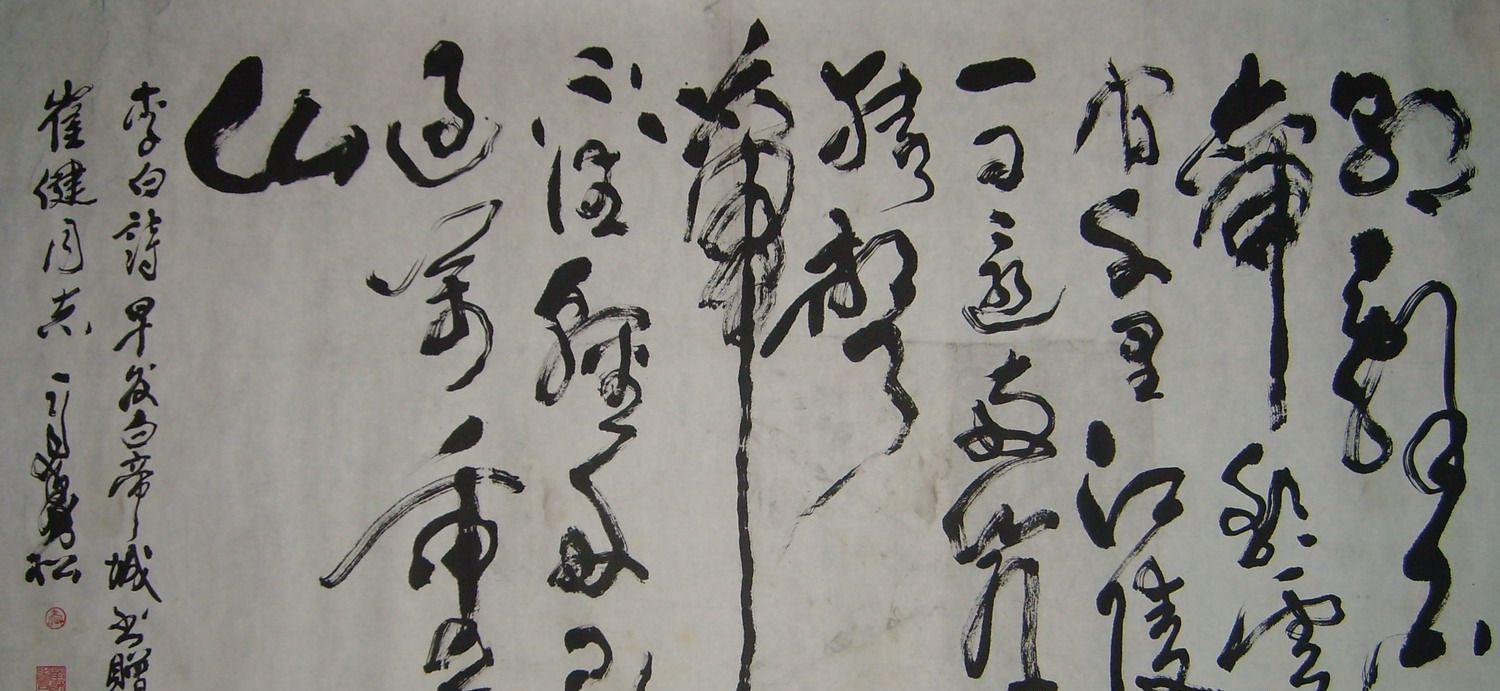 朝辭白
帝彩雲
间千里江陵
一日還兩岸
猿聲
啼
不住輕舟已
過萬重
山
李白詩早发白帝城书贈
崔健同志